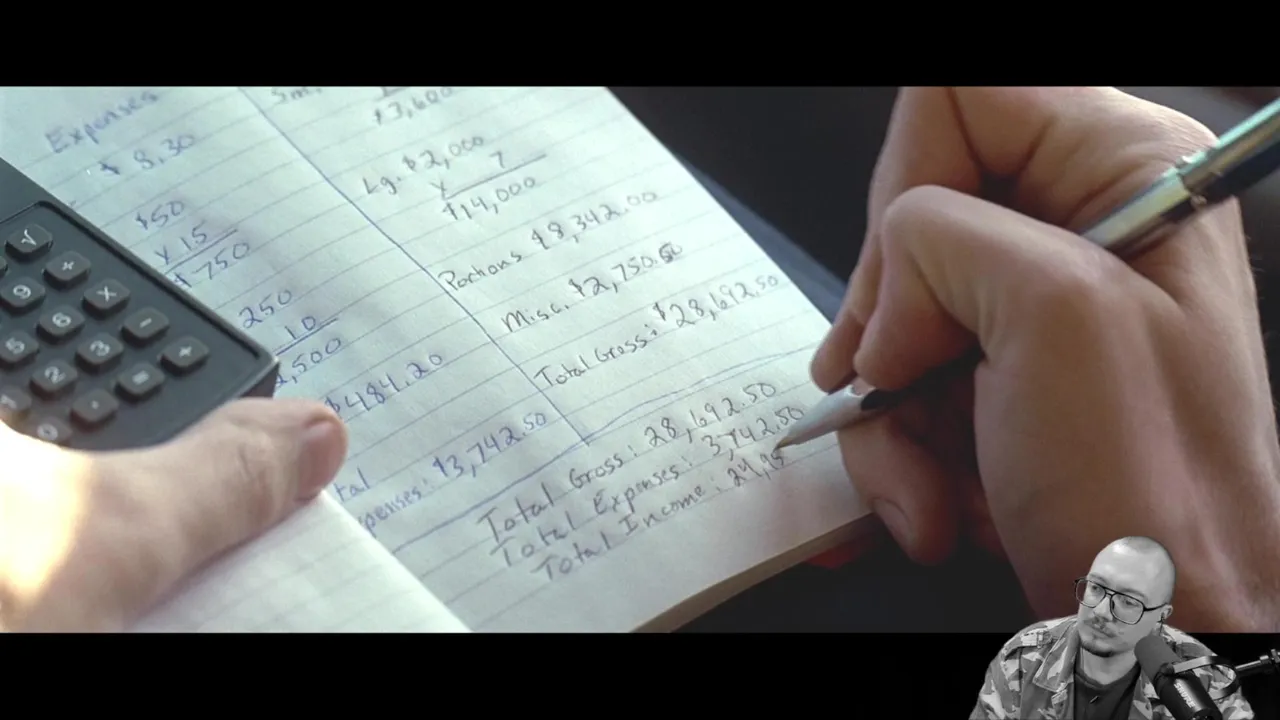 Expenses
$ 8.30
$50
x 15
$750
250
10
2,500
$484.20
tal
penses: $3,742.50
Sm.
$3,600
Lg. $2,000
x 7
$14,000
$8,342.00
Misc. $2,750.50
Total Gross: $28,692.50
Total Gross: 28,692.50
Total Expenses: 3,742.50
Total Income: 24,95
√
9
÷
6
×
5
3
−
2
+
1
=
0
.